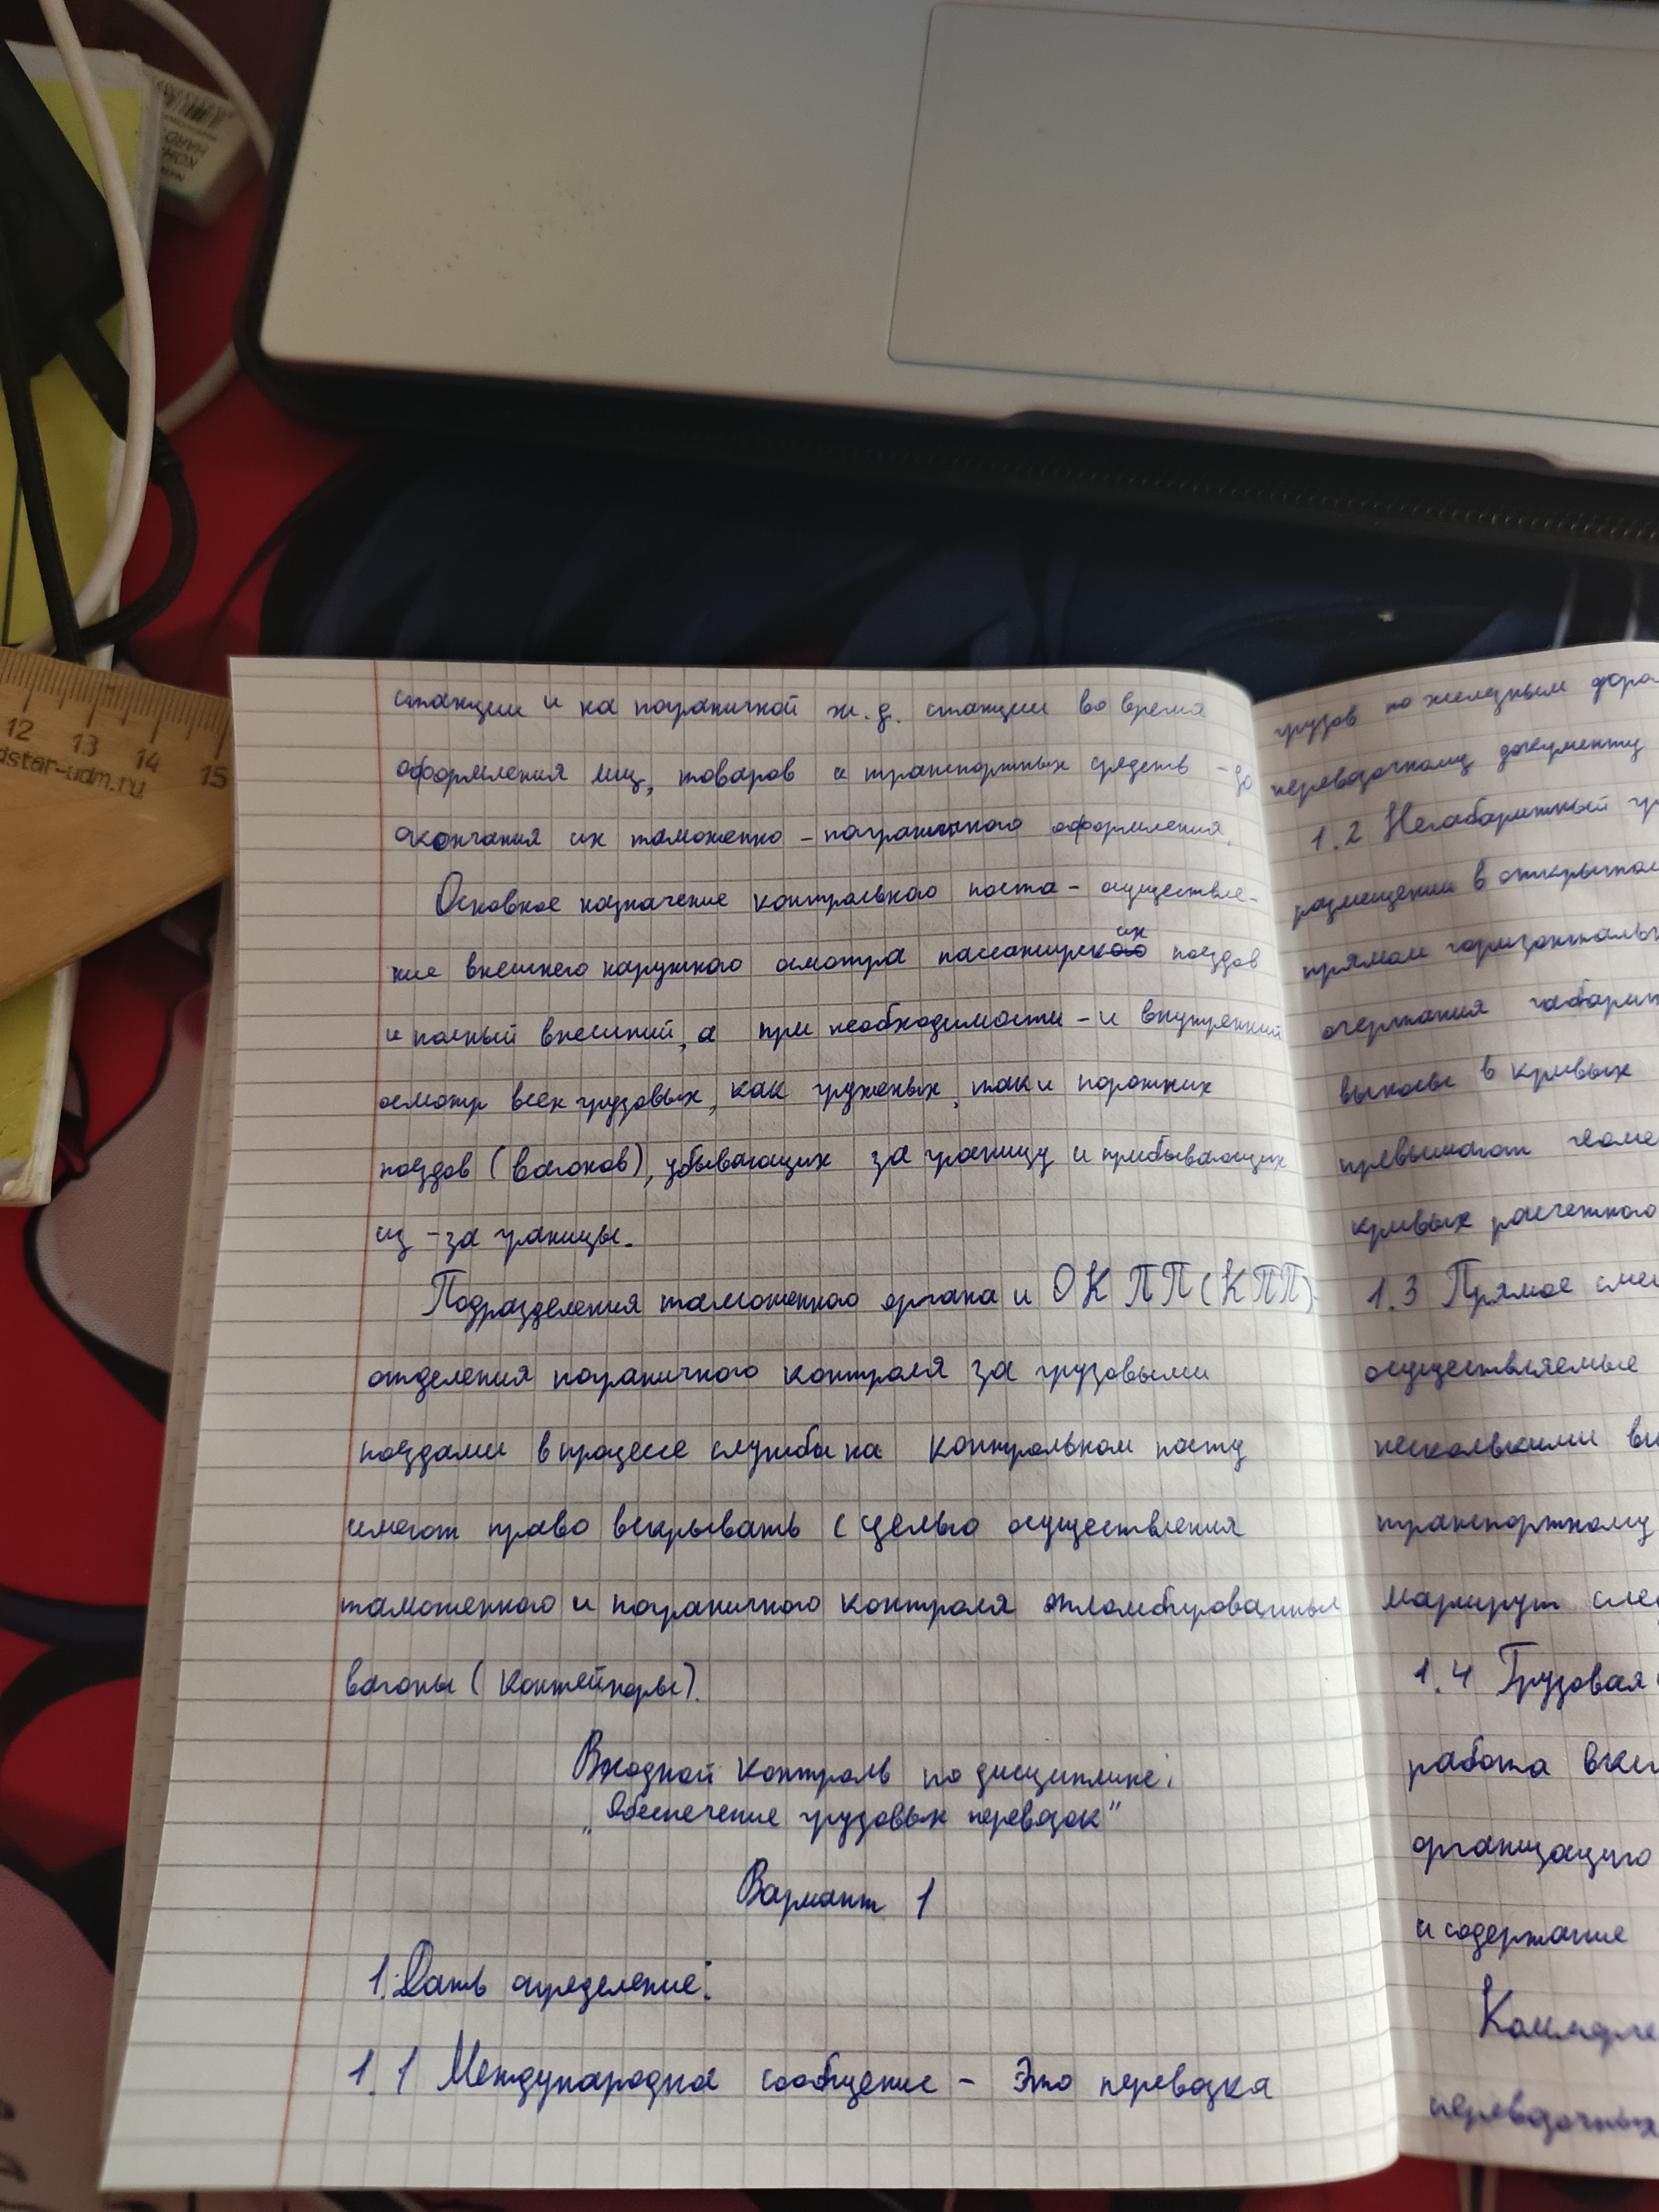 станции и на пограничной ж.д. станции во время
оформления лиц, товаров и транспортных средств - до
окончания их таможенно - пограничного оформления.
Основное назначение контрольного поста - осуществле-
ние внешнего наружного осмотра пассажирских поездов
и полный внешний, а при необходимости - и внутренний
осмотр всех грузовых, как груженых, так и порожних
поездов (вагонов), убывающих за границу и прибывающих
из - за границы.
Подразделения таможенного органа и ОКПП (КПП)
отделения пограничного контроля за грузовыми
поездами в процессе службы на контрольном посту
имеют право вскрывать с целью осуществления
таможенного и пограничного контроля опломбированные
вагоны (контейнеры).
Входной контроль по дисциплине:
„Обеспечение грузовых перевозок"
Вариант 1
1. Дать определение:
1.1 Международное сообщение - Это перевозка
грузов по железным
перевозочному документу
1.2 Негабаритный
размещении в открытом
прямом
очертания
выносы в кривых
превышают
кривых расчетного
1.3 Прямое
осуществляемые
несколькими
транспортному
маршрут
1.4 Грузовая
работа
организацию
и содержание
перевозочных
12 13 14 15
dstar-udm.ru
KOH-
HARD